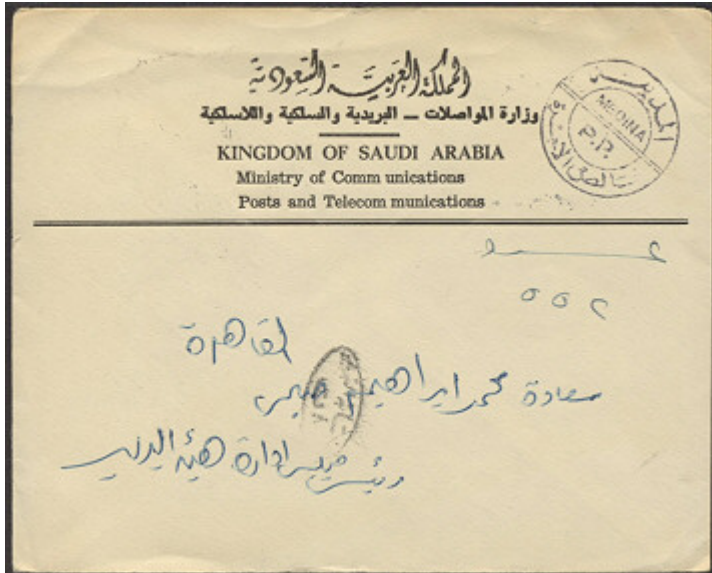 المملكة العربية السعودية
وزارة المواصلات – البريدية والسلكية واللاسلكية
KINGDOM OF SAUDI ARABIA
Ministry of Comm unications
Posts and Telecom munications
المدينة
MEDINA
P.P.
خالص الأجرة
٥٥٢
القاهرة
سعادة محمد ابراهيم صبحى
رئيس مجلس ادارة هيئة البريد